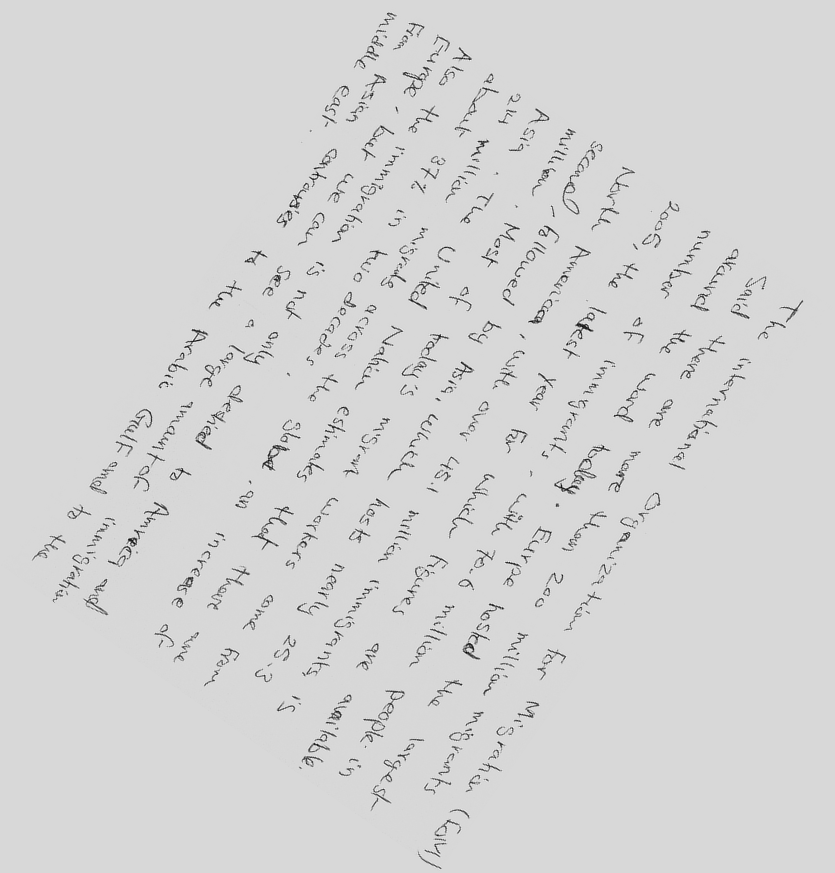 The international Organization for Migration (IOM)
Said there are more than 200 million migrants
around the word today. Europe hosted the largest
number of immigrants, with 70.6 million people in
2005, the latest year for which figures are available.
North American, with over 45.1 million immigrants, is
second, followed by Asia, which hosts nearly 25.3
million. Most of today's migrant workers come from
Asia. The United Nation estimates that there are
214 million migrats across the globe, an increase of
about 37% in two decades.
Also the immigration is not only desired to America and
Europe, but we can see a large amount of immigration
from Asian to the Arabic Gulf and to the
middle east.